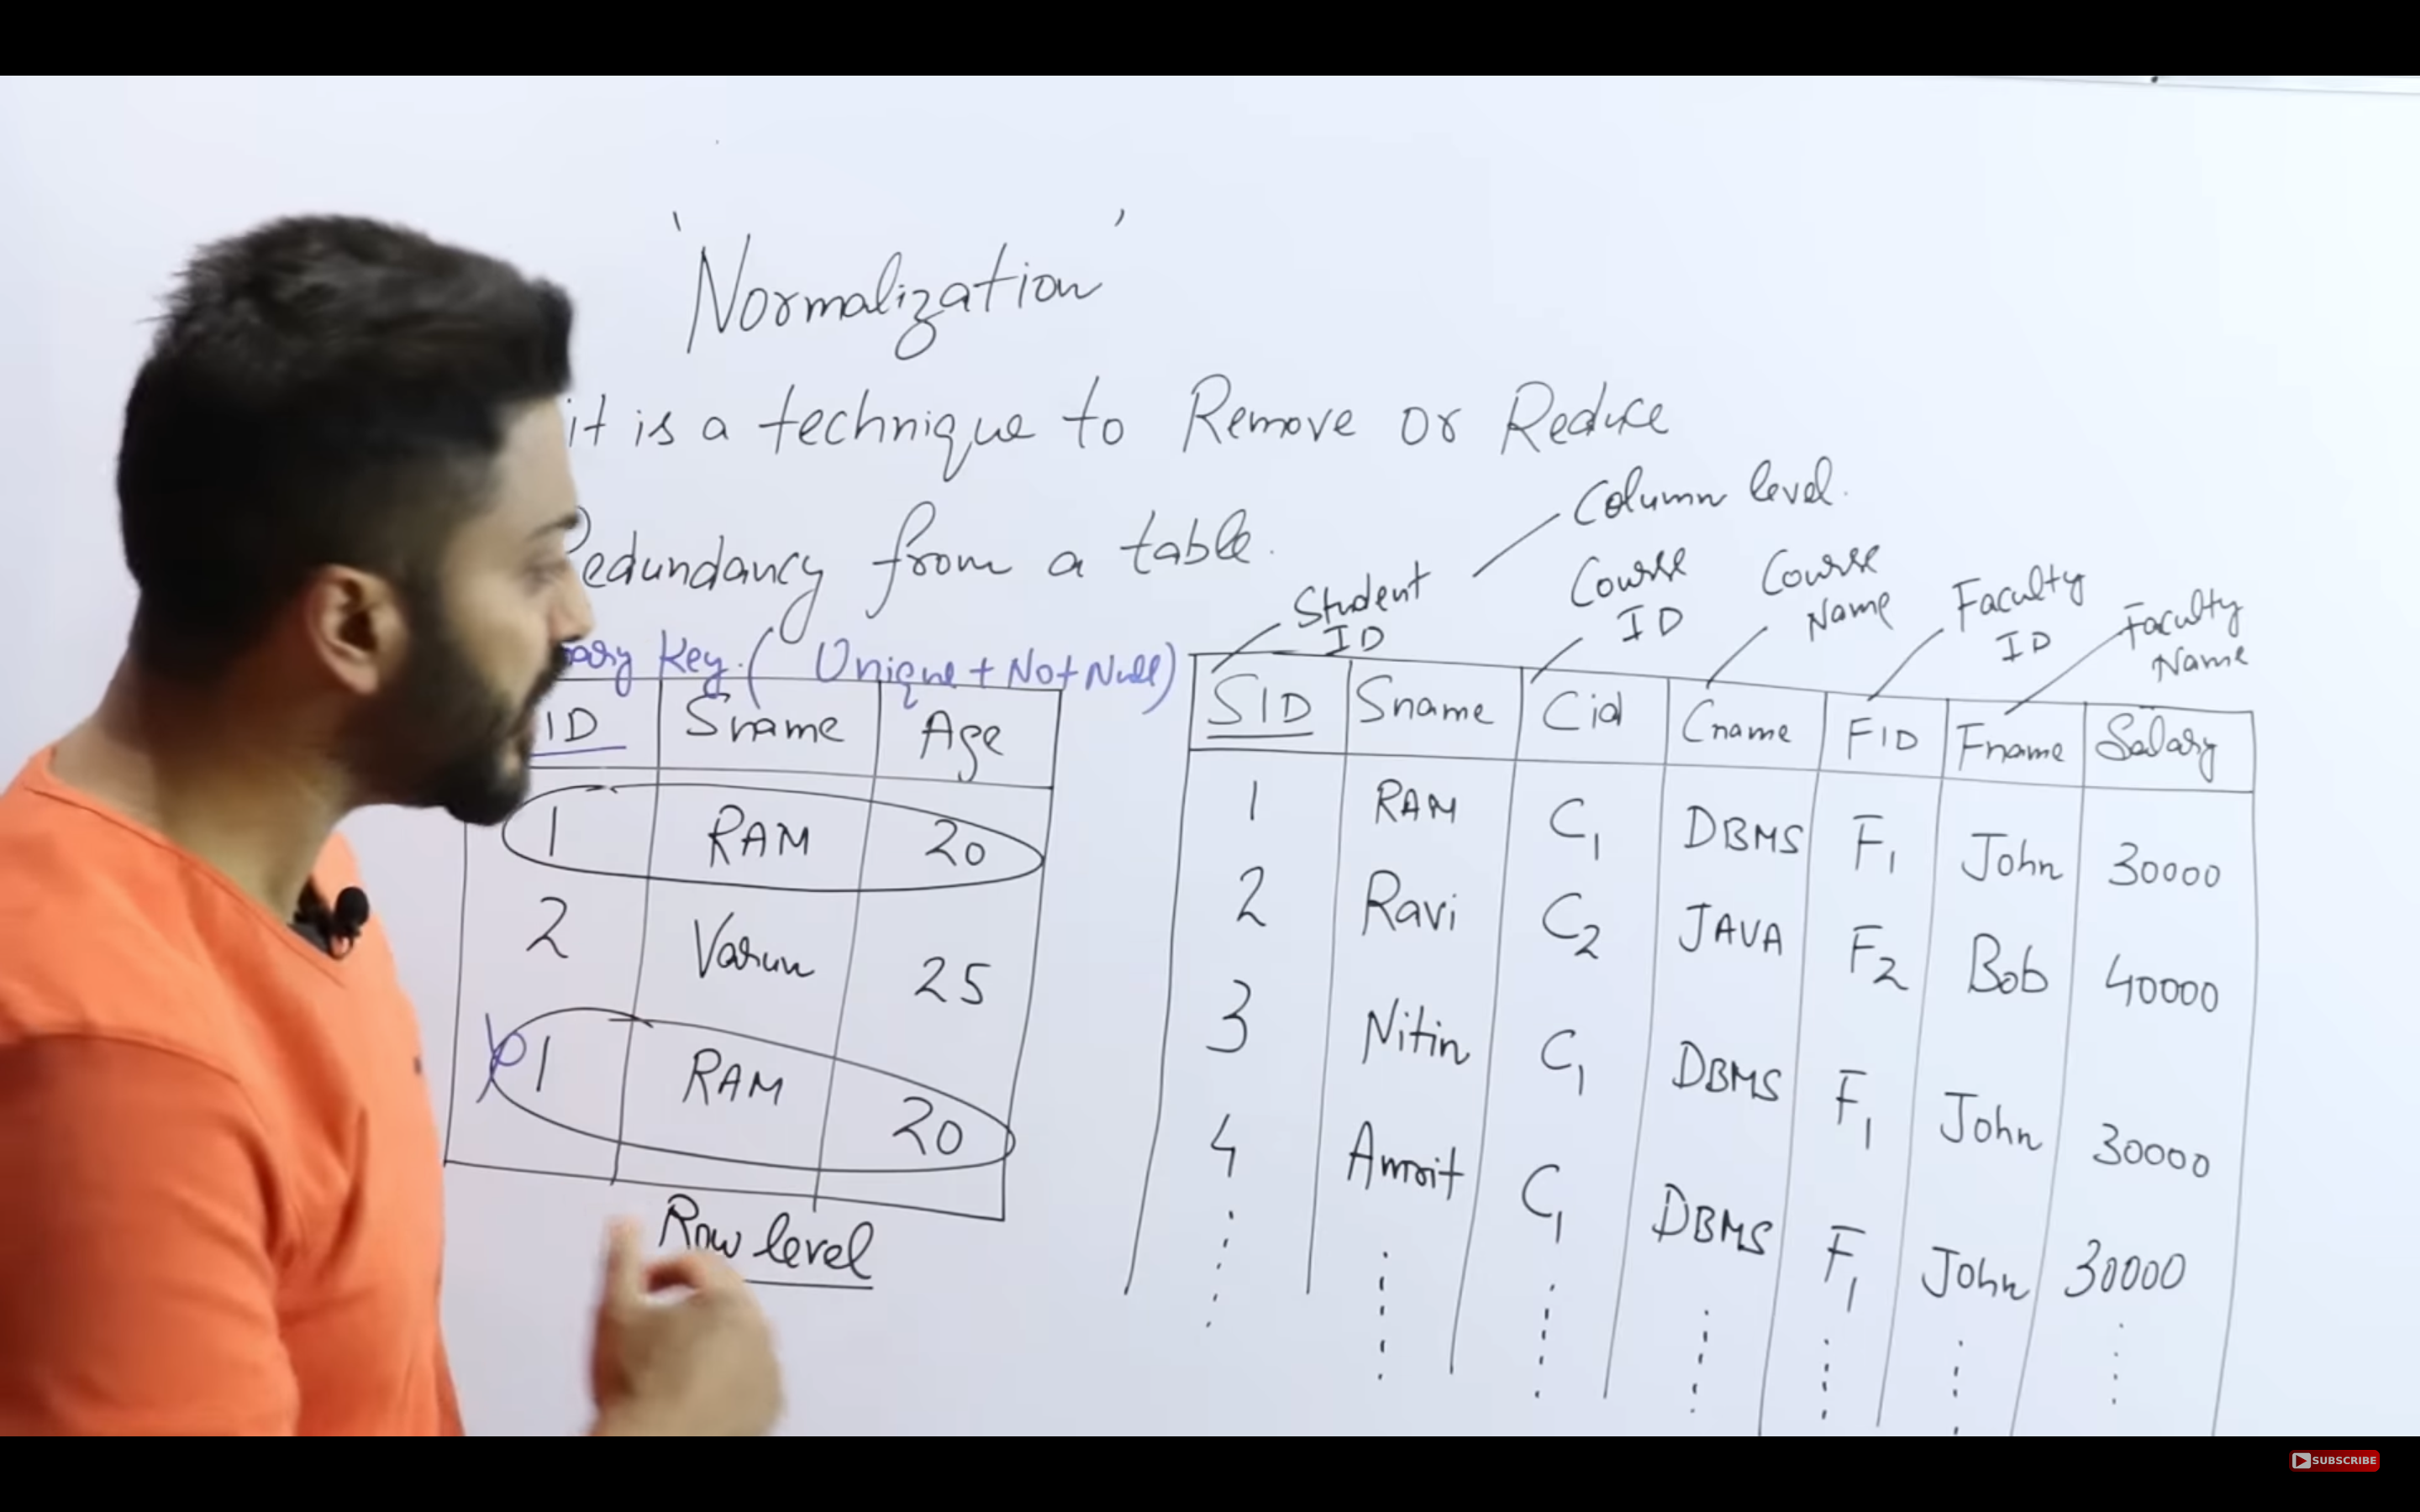 'Normalization'
it is a technique to Remove or Reduce
Redundancy from a table.
Key. ( Unique + Not Null)
ID Sname Age
1 RAM 20
2 Varun 25
1 RAM 20
Row level
Column level.
Student ID
Course ID
Course Name
Faculty ID
Faculty Name
SID Sname Cid Cname FID Fname Salary
1 RAM C1 DBMS F1 John 30000
2 Ravi C2 JAVA F2 Bob 40000
3 Nitin C1 DBMS F1 John 30000
4 Amrit C1 DBMS F1 John 30000
SUBSCRIBE